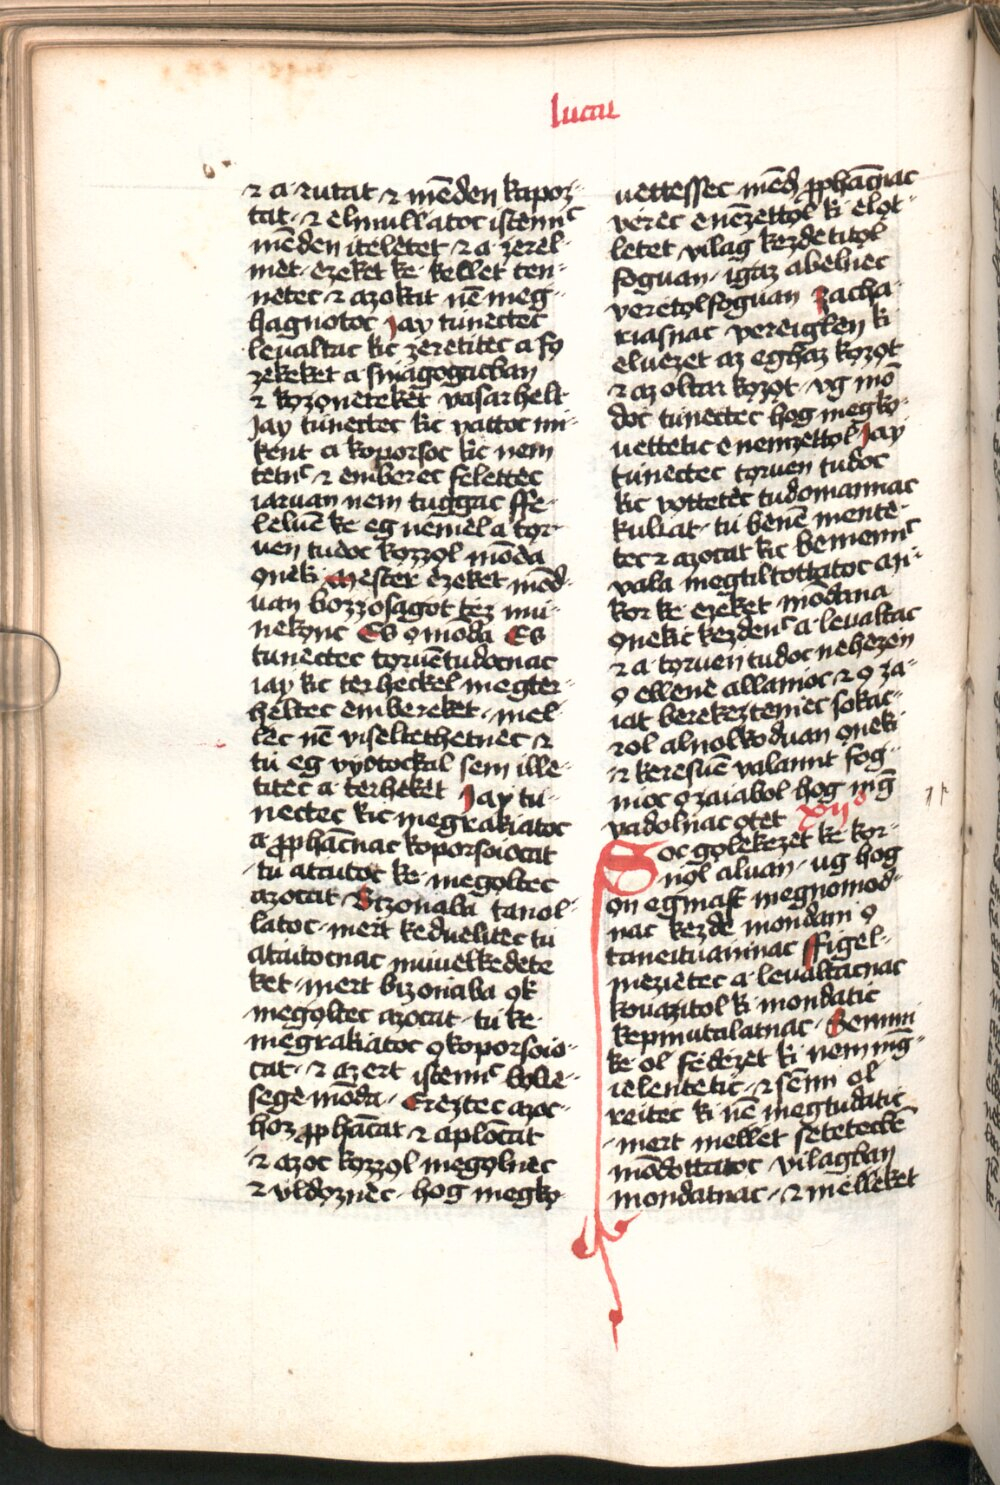 lucae
⁊ a· rutat ⁊ mēden kapoz-
tat· ⁊ elmullatoc istennc
mēden itèlètet· ⁊ a· zerèl-
mèt· ezeket ke· kellèt ten-
netec ⁊ azokat nē meg-
hagnotoc Jay tùnectec
leualtac kic zeretitec a fo
zekeket a· sinagogacban
⁊ kozonetekèt vasarhelt
Jay tùnectec kic vattoc mi-
kent a koporsoc kic nem
tetnc ⁊ emberec felettec
iaruan nem tuggac ffe-
leluē ke eg nemèl a tor-
uen tudoc kozzol mōda
onèki mester èzeket mōd-
uan bozzosagot tèz mi-
nekonc Es o mōda Es
tùnectec toruētudocnac
iay kic terheckel megter-
hèltec embereket· mel-
lec nē viseltethetnec ⁊
tù eg vyotockal sem ille-
titec a· terheket Jay tù-
nectec kic megrakiatoc
a pphācnac koporsoiocat
·tù atiatoc ke· megoltec
azocat Bizonaba tanol-
latoc· mert keduelitec tù
atiatocnac miuelkedete
ket· mert bizonaba ok
megoltec azocat· tù ke·
megrakiatoc o koporsoio-
cat· ⁊ azert istennc bolce-
sege mōda· Ereztec azoc-
hoz pphācat ⁊ aplōcat
·⁊ azoc kozzol megolnec
⁊ vldoznec· hog megko-
uettessec mēd pphācnac
verec e nēzettol ki elot-
letet vilag kezdetitol
foguan· igaz abelnec
veretol foguan zacha-
riasnac vereiglen ki
eluezet az eghaz kozot
⁊ az oltar kozot· vg mō
doc tùnectec hog megko-
uettetic e nemzettol Jay
tùnectec toruen tudoc
kic vottetec tudomannac
kulcat· tù benē mente-
tec ⁊ azocat kic bemennc
vala megtiltottatoc an-
kor ke ezeket mōdana
onekic kezdenc a· leualtac
⁊ a· toruen tudoc nehezen
o ellene allanioc ⁊ o za-
iat berekezteniec sokac-
rol alnolkoduan oneki
⁊ keresuē valamit fog-
nioc o zaiabol hog mg
vadolnac otet xijo
Soc golekezet ke kor-
nol aluan· ug hog
on egmast megnomod-
nac kezde mondani o
taneituaninac Ffigel-
mezietec a· leualtacnac
kouazitol ki mondatic
kepmutalatnac· Semmi
ke ol fèdezet ki nem mg-
ielentetic· ⁊ sēmi ol
reitec ki nē megtudatic
·mert mellet setetecbē
mōdottatoc vilagban
mondatnac· ⁊ mēlleket